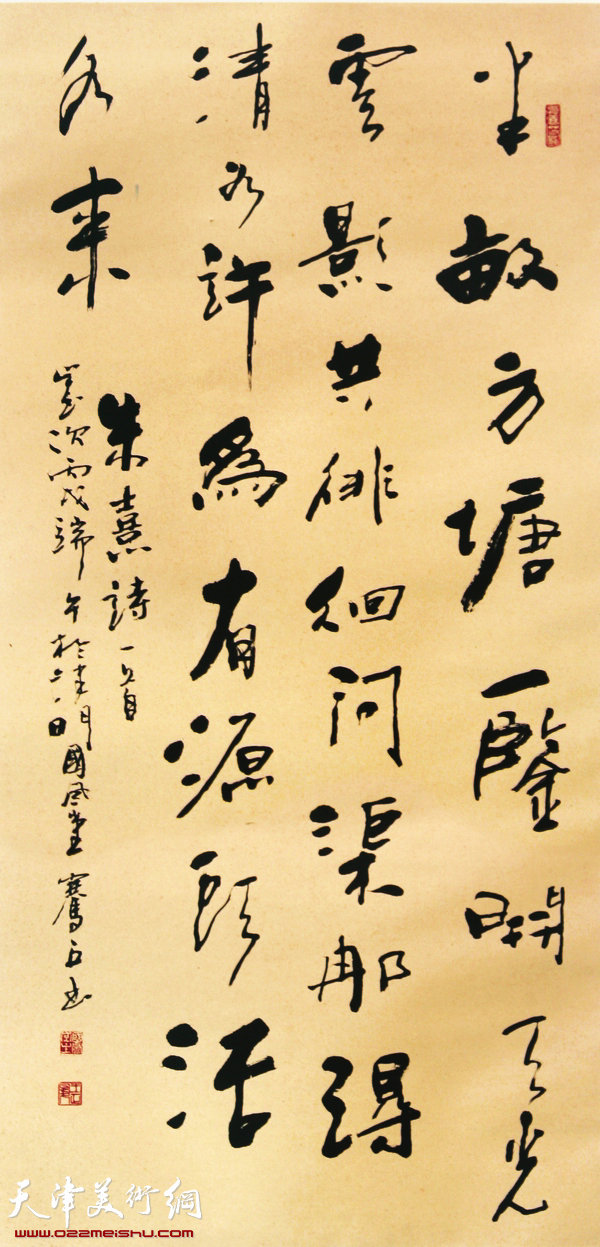 半畝方塘一鑒開天光
雲影共徘徊問渠那得
清如許為有源頭活
水來
朱熹詩一首
歲次丙戌端午於國風堂
天津美術網
www.022meishu.com